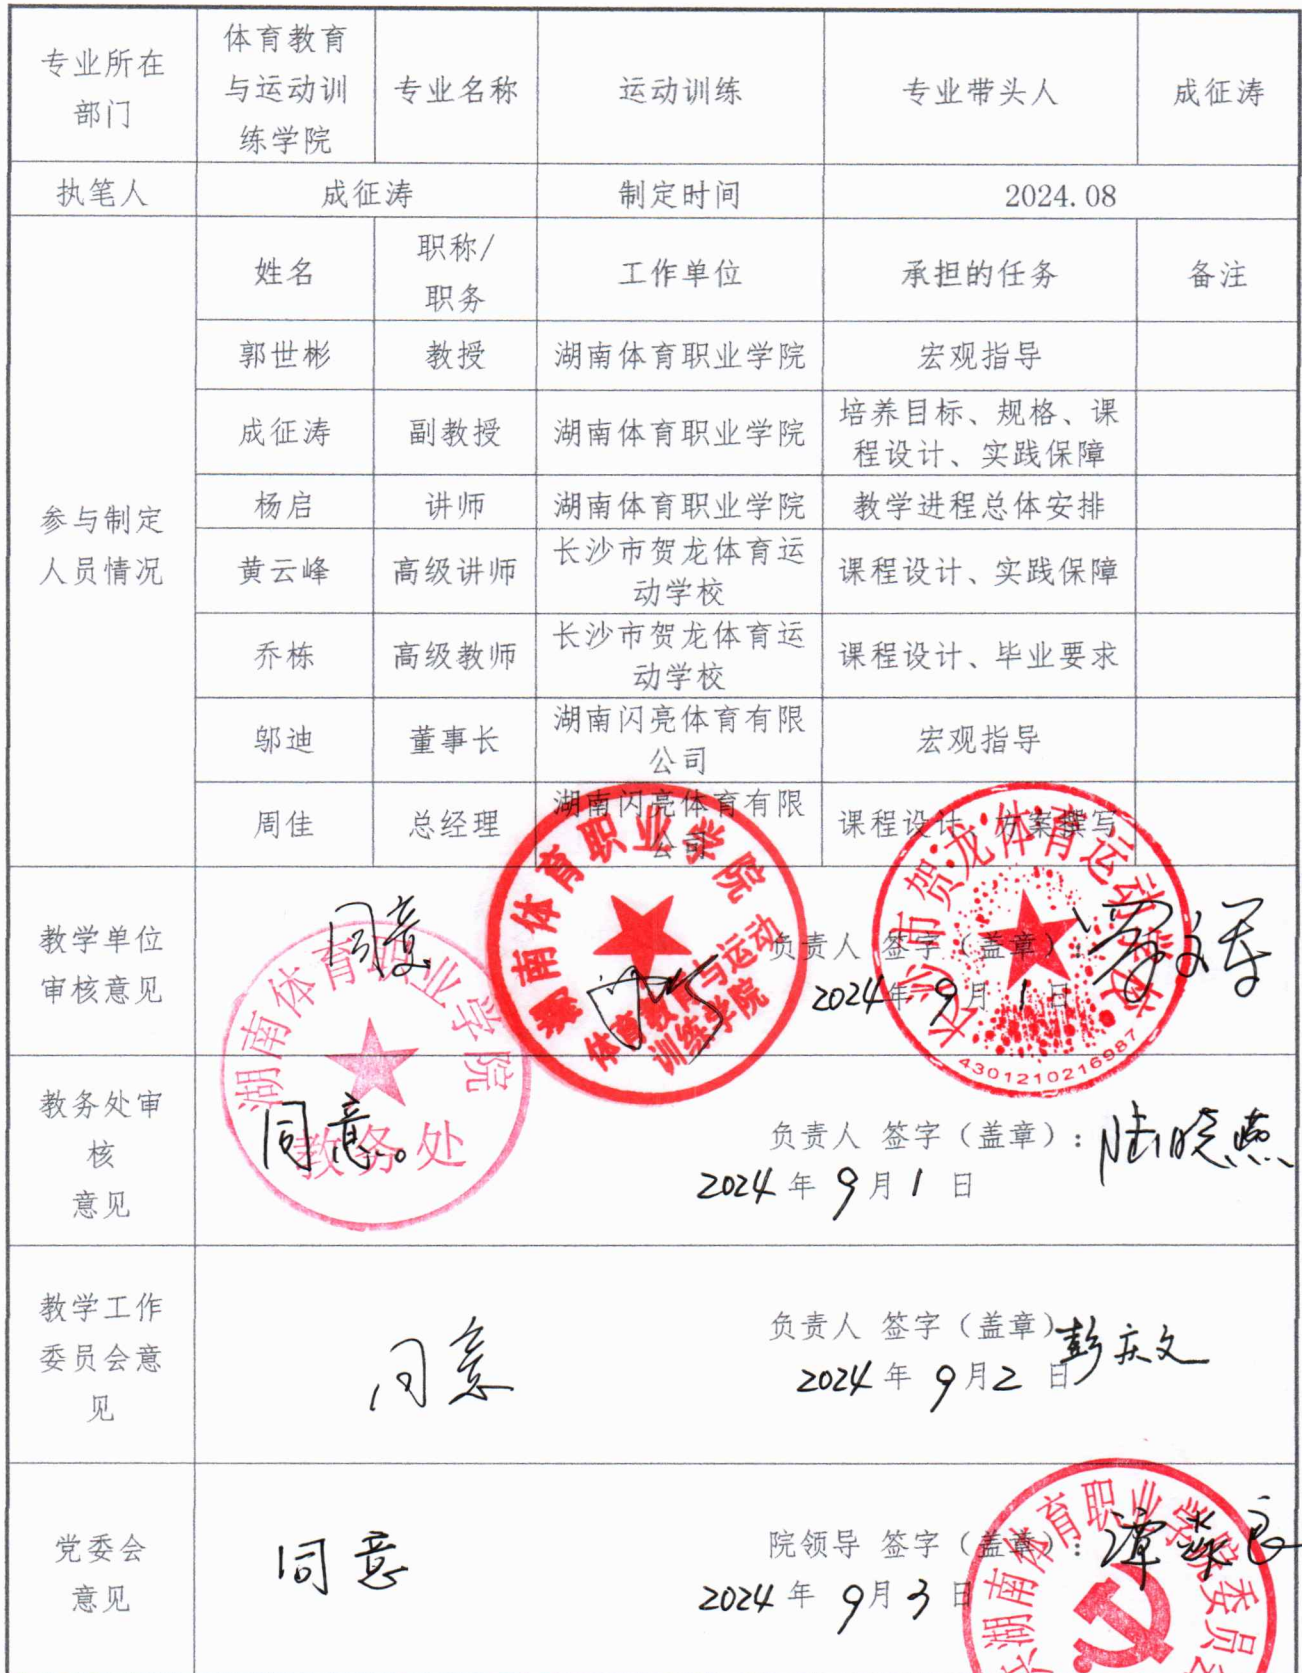 专业所在
部门
体育教育
与运动训
练学院
专业名称
运动训练
专业带头人
成征涛
执笔人
成征涛
制定时间
2024.08
参与制定
人员情况
姓名
职称/
职务
工作单位
承担的任务
备注
郭世彬
教授
湖南体育职业学院
宏观指导
成征涛
副教授
湖南体育职业学院
培养目标、规格、课
程设计、实践保障
杨启
讲师
湖南体育职业学院
教学进程总体安排
黄云峰
高级讲师
长沙市贺龙体育运
动学校
课程设计、实践保障
乔栋
高级教师
长沙市贺龙体育运
动学校
课程设计、毕业要求
邬迪
董事长
湖南闪亮体育有限
公司
宏观指导
周佳
总经理
湖南闪亮体育有限
公司
课程设计、方案撰写
教学单位
审核意见
同意
湖南体育职业学院
体育教育与运动
训练学院
长沙市贺龙体育运动学校
4301210216987
负责人 签字（盖章）:
2024年 9月 1日
教务处审
核
意见
湖南体育职业学院
教务处
同意。
负责人 签字（盖章）:陆晓燕
2024年 9月 1日
教学工作
委员会意
见
同意
负责人 签字（盖章）彭庆文
2024年 9月2日
党委会
意见
同意
院领导 签字（盖章）:谭焱良
2024年 9月3日
湖南体育职业学院委员